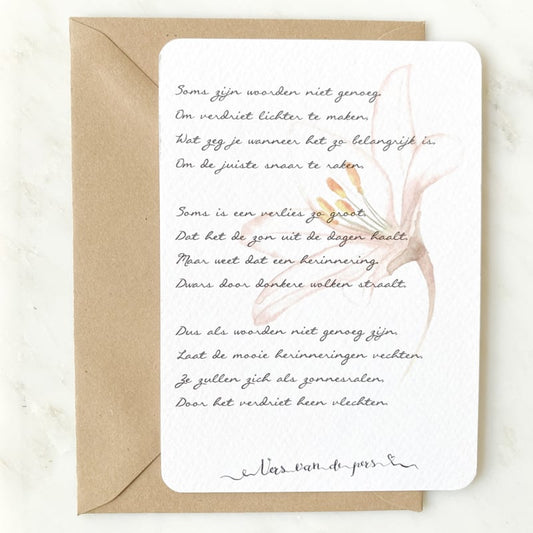 Soms zijn woorden niet genoeg.
Om verdriet lichter te maken.
Wat zeg je wanneer het zo belangrijk is.
Om de juiste snaar te raken.
Soms is een verlies zo groot.
Dat het de zon uit de dagen haalt.
Maar weet dat een herinnering.
Dwars door donkere wolken straalt.
Dus als woorden niet genoeg zijn.
Laat de mooie herinneringen vechten.
Ze zullen zich als zonnesralen.
Door het verdriet heen vlechten.
Vers van de pers